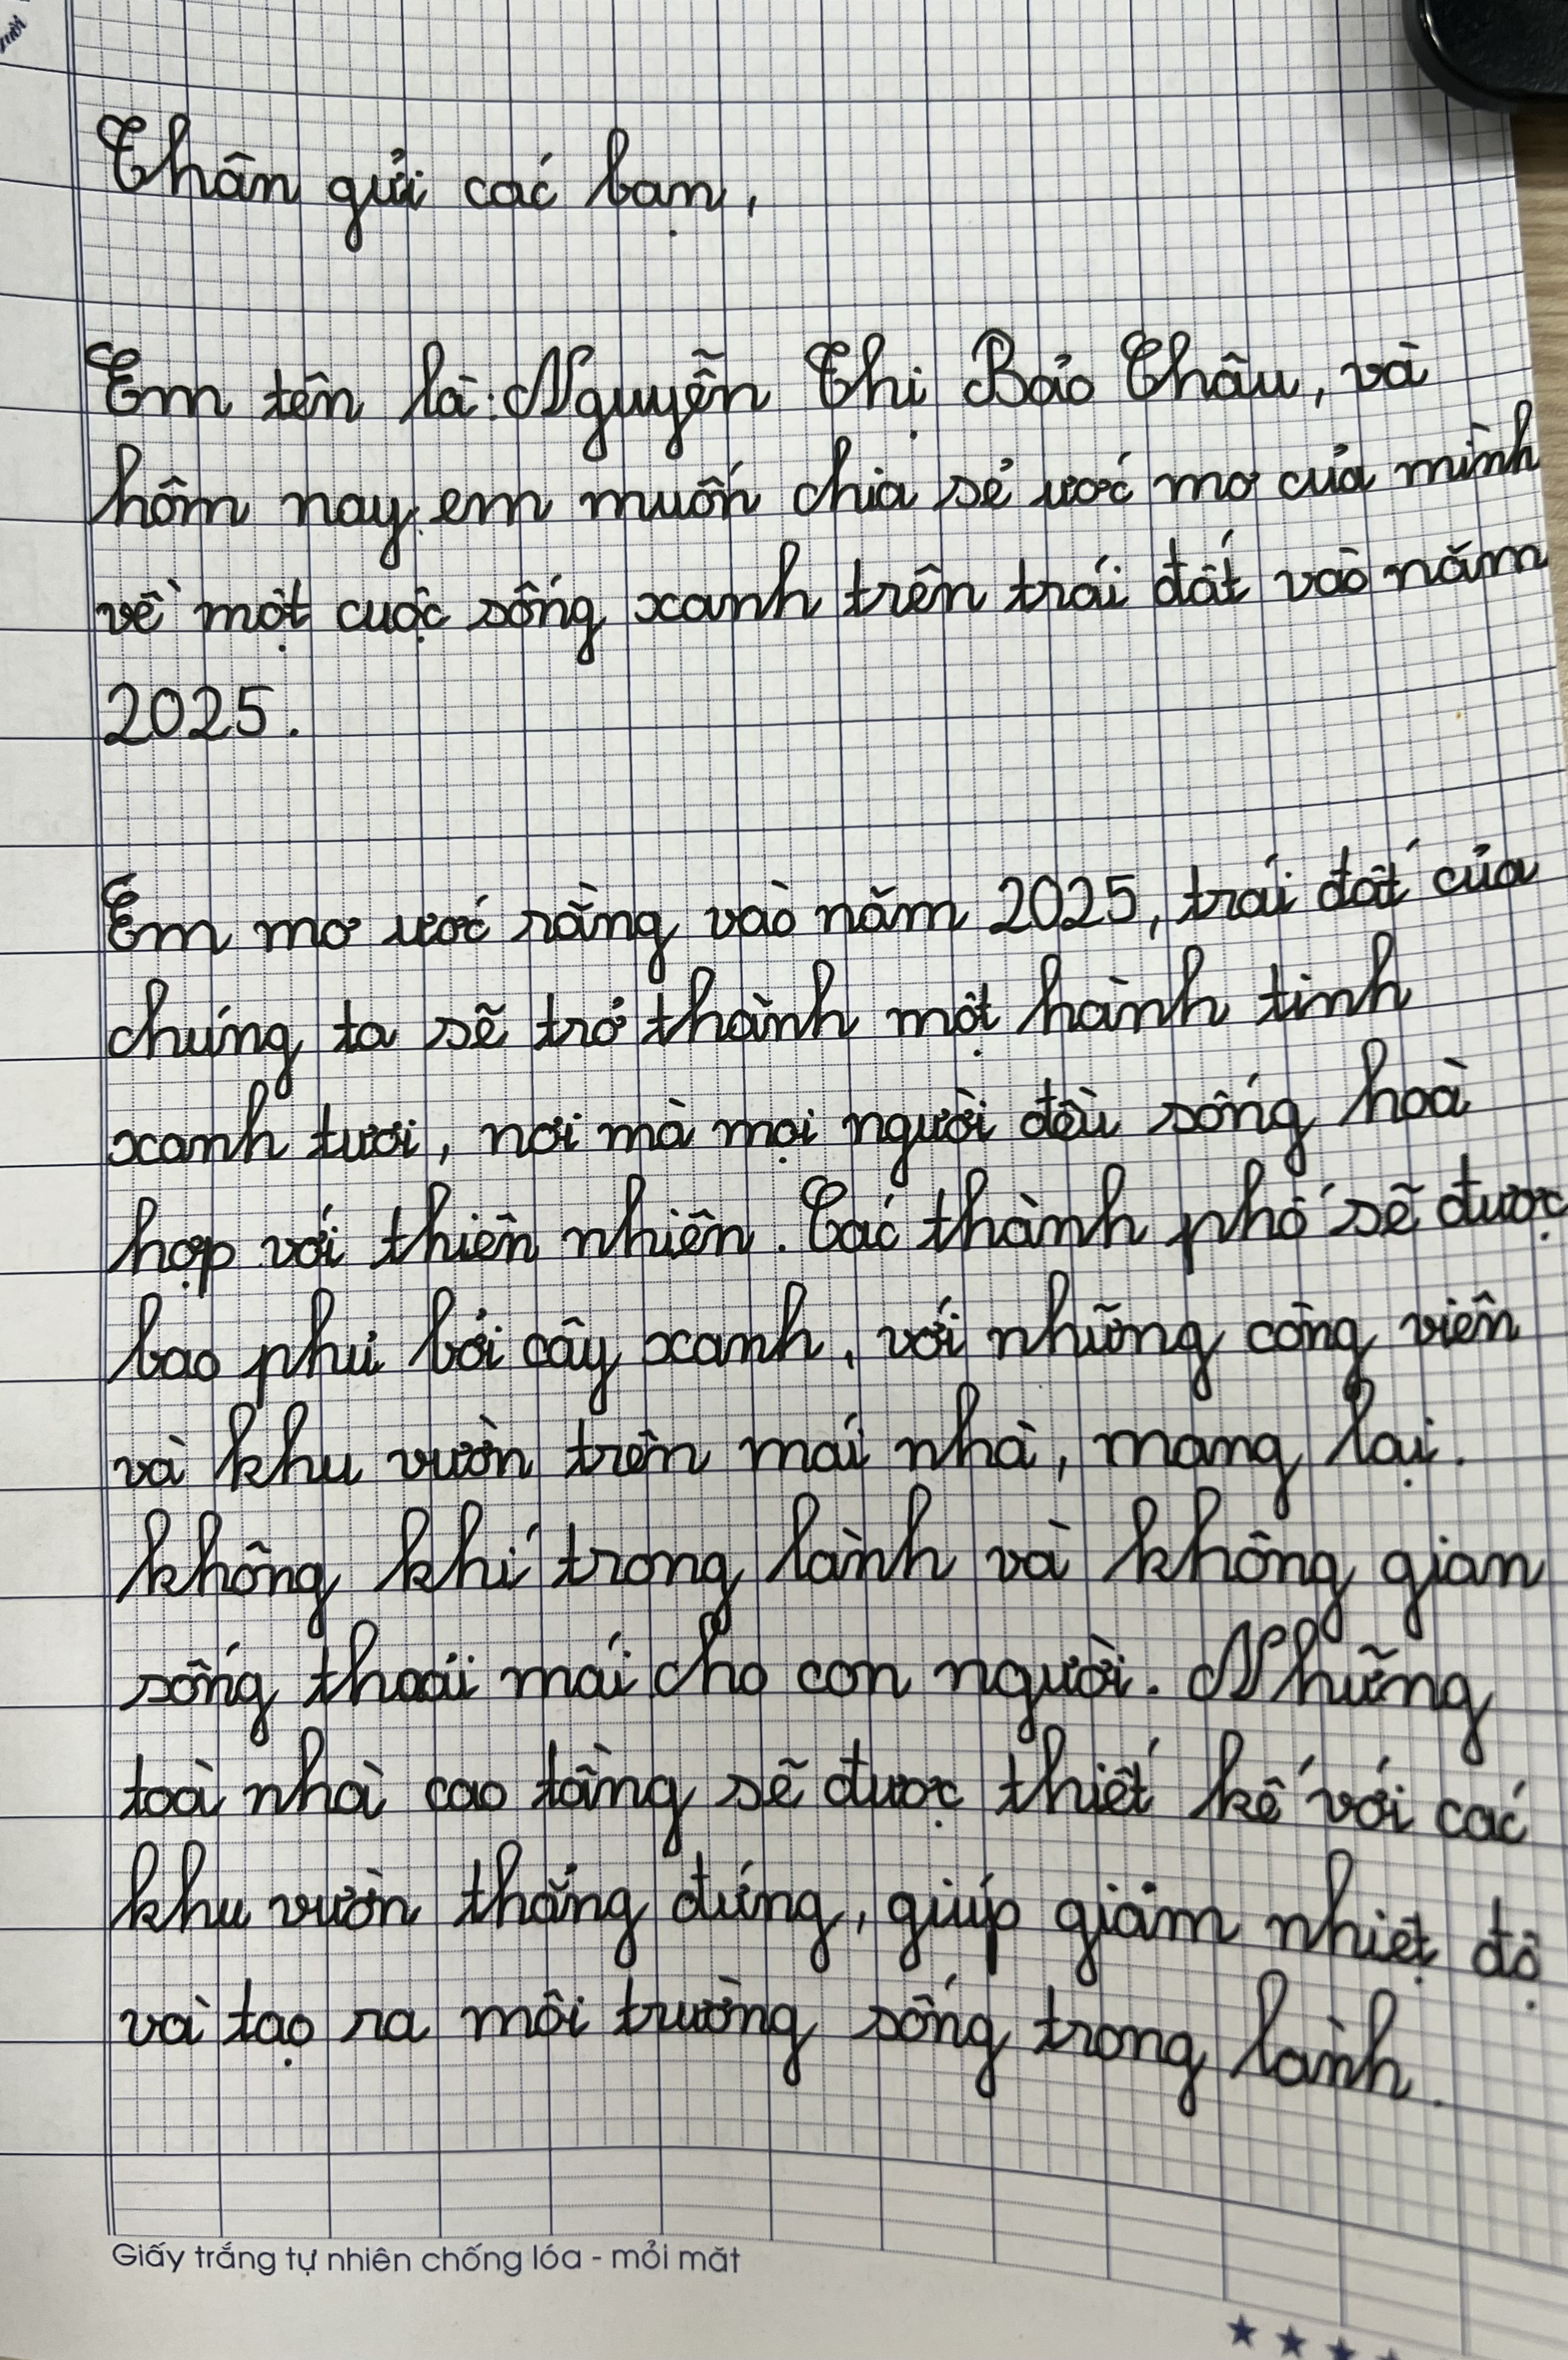 Thân gửi các bạn,
Em tên là: Nguyễn Thị Bảo Châu, và
hôm nay em muốn chia sẻ ước mơ của mình
về một cuộc sống xanh trên trái đất vào năm
2025.
Em mơ ước rằng vào năm 2025, trái đất của
chúng ta sẽ trở thành một hành tinh
xanh tươi, nơi mà mọi người đều sống hoà
hợp với thiên nhiên. Các thành phố sẽ được
bao phủ bởi cây xanh, với những công viên
và khu vườn trên mái nhà, mang lại.
không khí trong lành và không gian
sống thoải mái cho con người. Những
toà nhà cao tầng sẽ được thiết kế với các
khu vườn thẳng đứng, giúp giảm nhiệt độ
và tạo ra môi trường sống trong lành.
Giấy trắng tự nhiên chống lóa - mỏi mắt